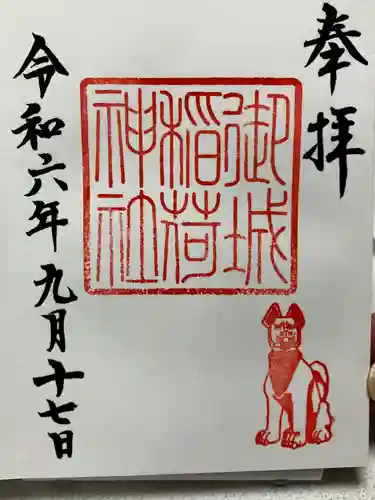 奉拝
御城
稲荷
神社
令和六年九月十七日